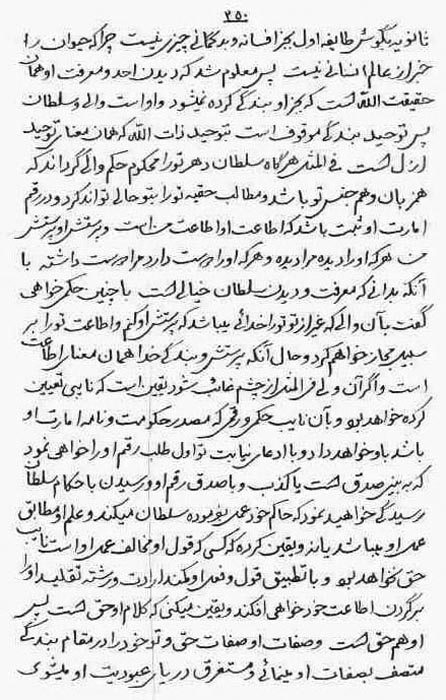 ۳۵۰
ثانویه بگوش طایفه اول بجز افسانه و بدگمانی چیزی نیست چرا که حیوان را
خبر از عالم انسانی نیست پس معلوم شد که دیدن احد و معرفت او همان
حقیقت الله است که بجز او بندگی کرده نمیشود و او است والی و سلطان
پس توحید بندگی موقوف است بتوحید ذات الله که همان معنای توحید
ازل است فی المثل هرگاه سلطان دهر تو را محکوم حکم والی گرداند که
همزبان و هم جنس تو باشد و مطالب حقیه تو را بتو حالی تواند کرد و در رقم
امارت او ثبت باشد که اطاعت او اطاعت من است و پرستش او پرستش
من هر که او را دیده مرا دیده و هر که او را دوست دارد مرا دوست داشته با
آنکه بدانی که معرفت و دیدن سلطان خیالی است با چنین حکمی خواهی
گفت بآن والی که غیر از تو تو را خدائی میباشد که پرستش او کنم و اطاعت تو را بر
سبیل مجاز خواهم کرد و حال آنکه پرستش و بندگی خدا همان معنای اطاعت
است و اگر آن ولی فی المثل از چشم غائب شود یقین است که نایبی تعیین
کرده خواهد بود و بآن نایب حکم و رقمی که مصدر حکومت و نامه امارت او
باشد باو خواهد داد و با ادعای نیابت تو اول طلب رقم او را خواهی نمود
که به بینی صدق است یا کذب و با صدق رقم او وررسیدن باحکام سلطان
رسیدگی خواهید نمود که حاکم خود عمل بفرموده سلطان میکند و علم او مطابق
عمل او میباشد یا نه و یقین کرده که کسی که قول او مخالف عمل او است نایب
حق نخواهد بود و با تطبیق قول و فعل او کمند ارادت و رشته تقلید او را
بر گردن اطاعت خود خواهی افکند و یقین میکنی که کلام او حق است پس
او هم حق است و صفات او صفات حق و تو خود را در مقام بندگی
متصف بصفات او مینمائی و مستغرق دریای عبودیت او میشوی